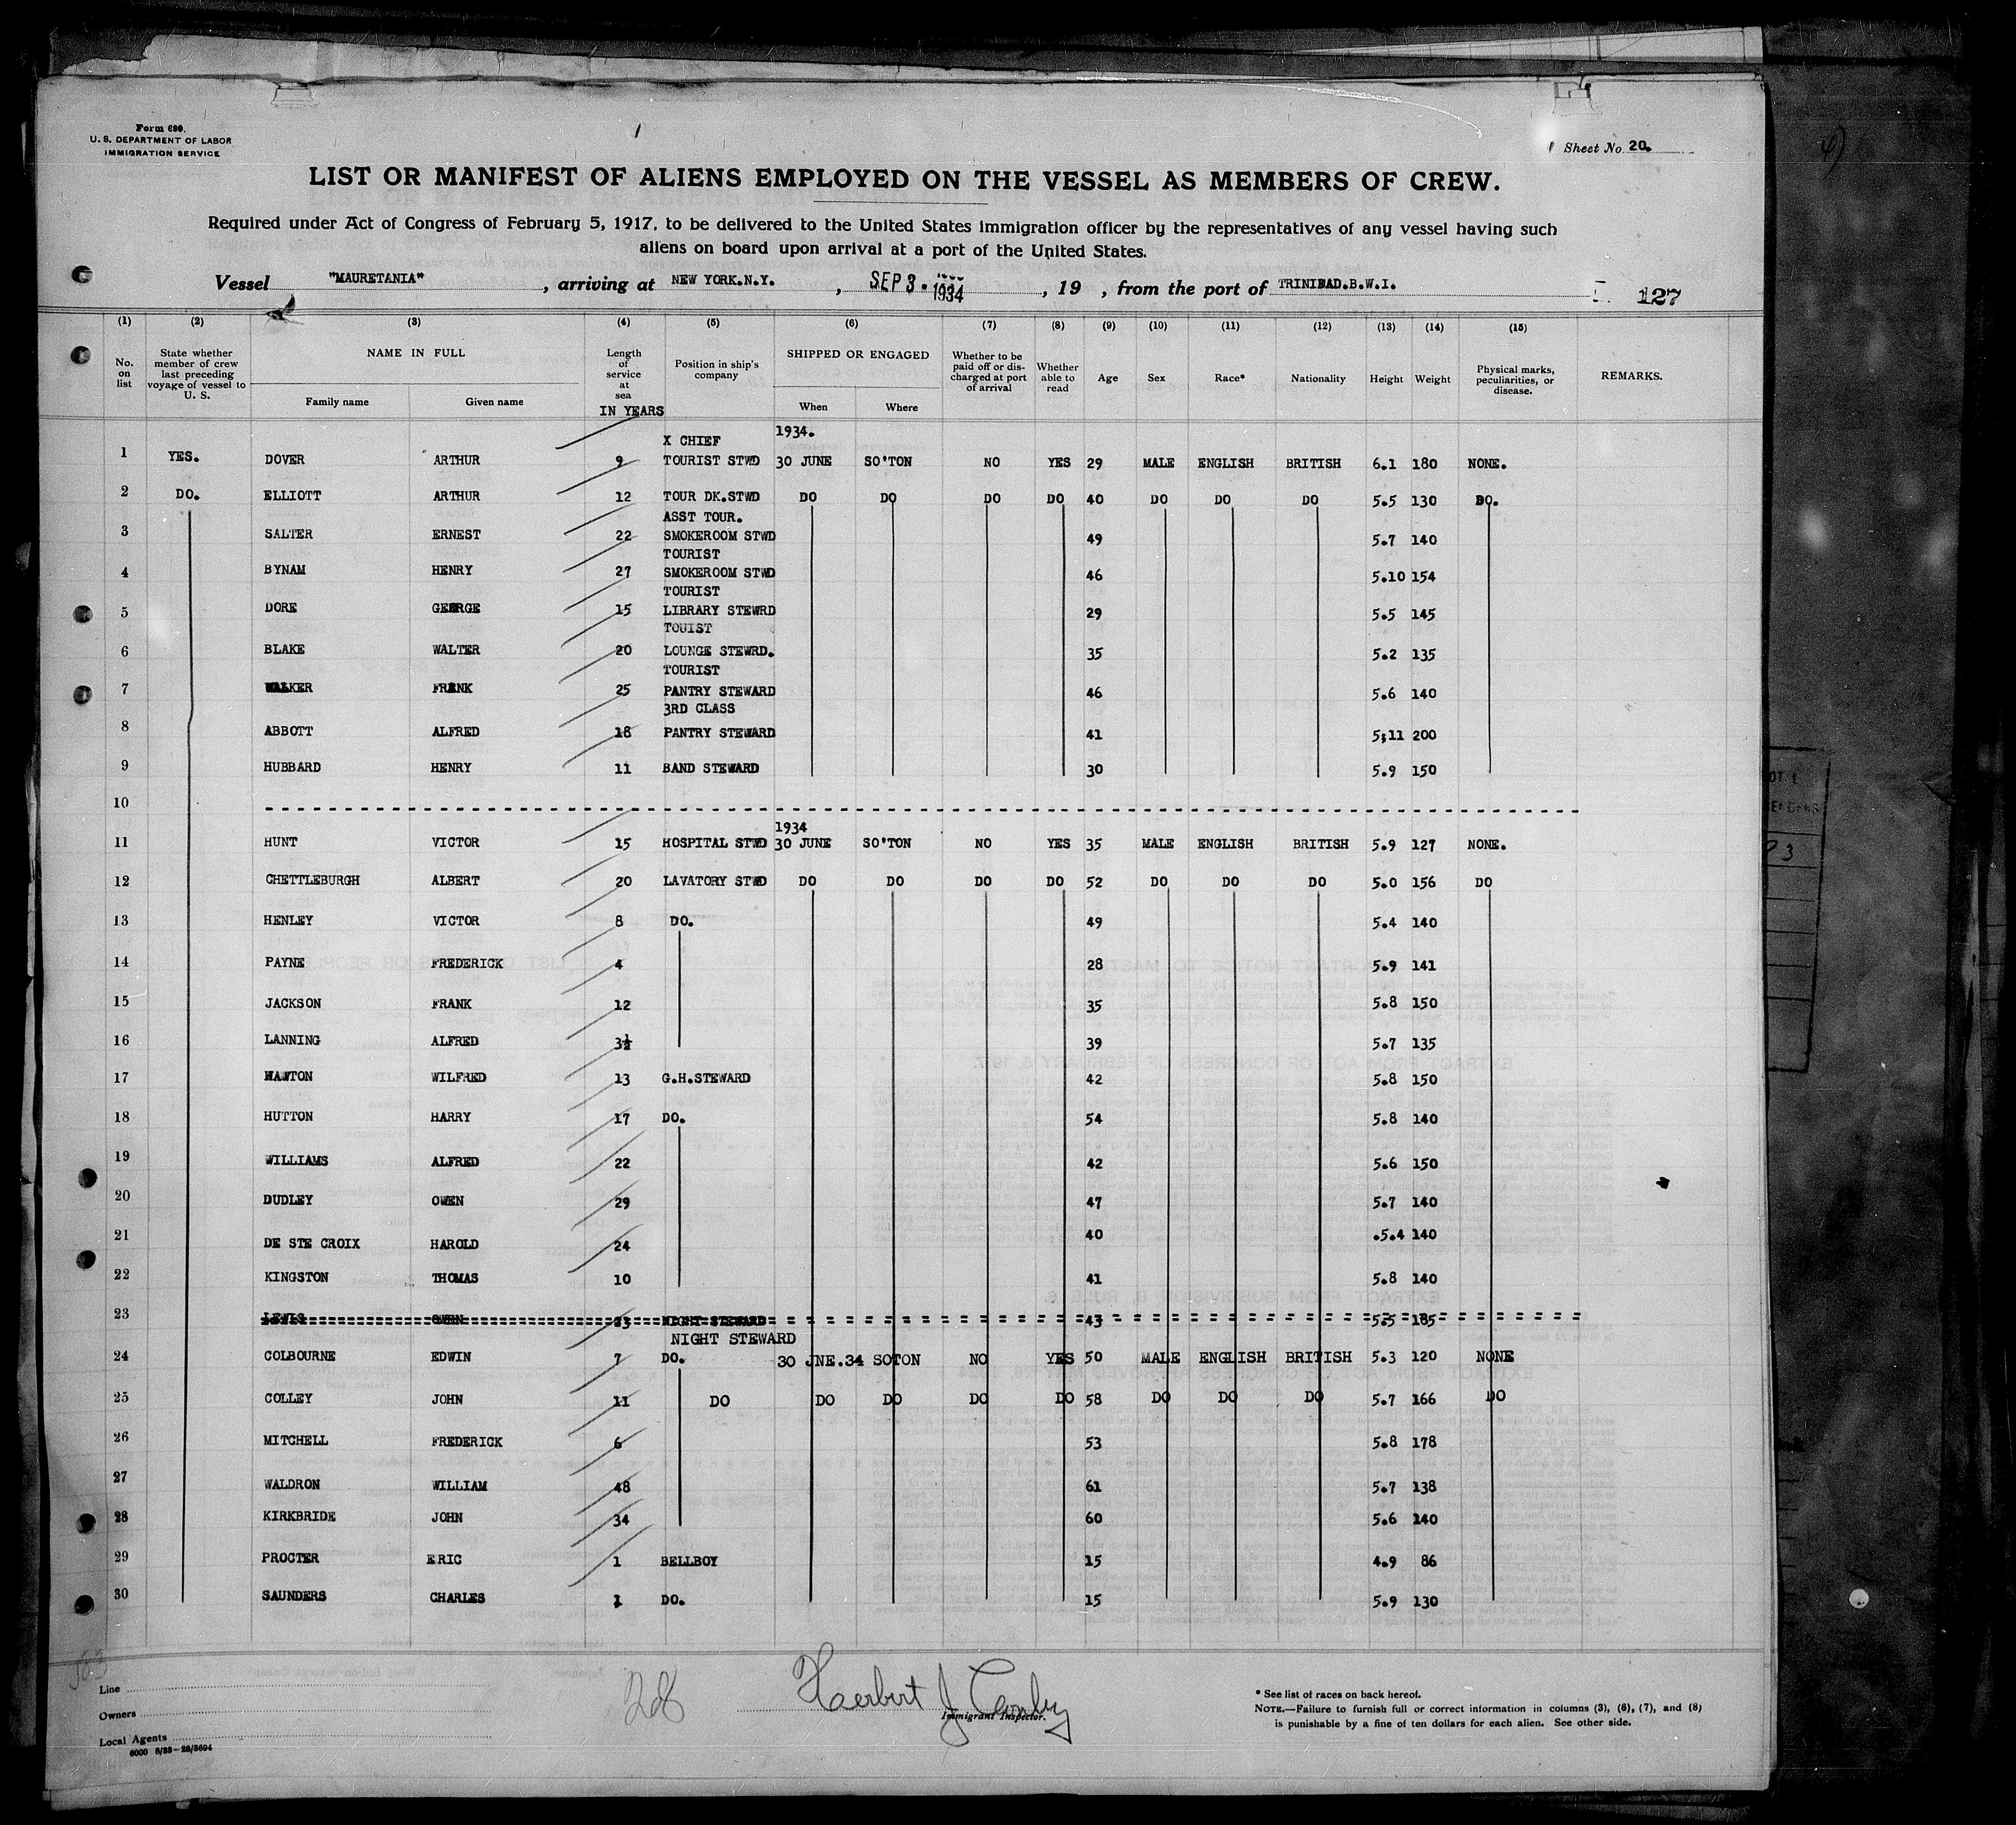 Form 680.
U. S. DEPARTMENT OF LABOR
IMMIGRATION SERVICE
Sheet No. 20.
LIST OR MANIFEST OF ALIENS EMPLOYED ON THE VESSEL AS MEMBERS OF CREW.
Required under Act of Congress of February 5, 1917, to be delivered to the United States immigration officer by the representatives of any vessel having such
aliens on board upon arrival at a port of the United States.
Vessel "MAURETANIA", arriving at NEW YORK.N.Y., SEP 3. 1934, 19 , from the port of TRINIDAD.B.W.I. 127
(1) (2) (3) (4) (5) (6) (7) (8) (9) (10) (11) (12) (13) (14) (15)
No. on list State whether member of crew last preceding voyage of vessel to U. S. NAME IN FULL Family name Given name Length of service at sea IN YEARS Position in ship's company SHIPPED OR ENGAGED When Where Whether to be paid off or discharged at port of arrival Whether able to read Age Sex Race* Nationality Height Weight Physical marks, peculiarities, or disease. REMARKS.
X CHIEF 1934.
1 YES. DOVER ARTHUR 9 TOURIST STWD 30 JUNE SO'TON NO YES 29 MALE ENGLISH BRITISH 6.1 180 NONE.
2 DO. ELLIOTT ARTHUR 12 TOUR DK.STWD DO DO DO DO 40 DO DO DO 5.5 130 DO.
ASST TOUR.
3 SALTER ERNEST 22 SMOKEROOM STWD 49 5.7 140
TOURIST
4 BYNAM HENRY 27 SMOKEROOM STWD 46 5.10 154
TOURIST
5 DORE GEORGE 15 LIBRARY STEWRD 29 5.5 145
TOUIST
6 BLAKE WALTER 20 LOUNGE STEWRD. 35 5.2 135
TOURIST
7 WALKER FRANK 25 PANTRY STEWARD 46 5.6 140
3RD CLASS
8 ABBOTT ALFRED 18 PANTRY STEWARD 41 5;11 200
9 HUBBARD HENRY 11 BAND STEWARD 30 5.9 150
10
1934
11 HUNT VICTOR 15 HOSPITAL STWD 30 JUNE SO'TON NO YES 35 MALE ENGLISH BRITISH 5.9 127 NONE.
12 CHETTLEBURGH ALBERT 20 LAVATORY STWD DO DO DO DO 52 DO DO DO 5.0 156 DO
13 HENLEY VICTOR 8 DO. 49 5.4 140
14 PAYNE FREDERICK 4 28 5.9 141
15 JACKSON FRANK 12 35 5.8 150
16 LANNING ALFRED 3½ 39 5.7 135
17 HAWTON WILFRED 13 G.H.STEWARD 42 5.8 150
18 HUTTON HARRY 17 DO. 54 5.8 140
19 WILLIAMS ALFRED 22 42 5.6 150
20 DUDLEY OWEN 29 47 5.7 140
21 DE STE CROIX HAROLD 24 40 .5.4 140
22 KINGSTON THOMAS 10 41 5.8 140
23 LEWIS OWEN 23 NIGHT STEWARD 43 5.5 185
NIGHT STEWARD
24 COLBOURNE EDWIN 7 DO. 30 JNE.34 SOTON NO YES 50 MALE ENGLISH BRITISH 5.3 120 NONE
25 COLLEY JOHN 11 DO DO DO DO DO 58 DO DO DO 5.7 166 DO
26 MITCHELL FREDERICK 6 53 5.8 178
27 WALDRON WILLIAM 48 61 5.7 138
28 KIRKBRIDE JOHN 34 60 5.6 140
29 PROCTER ERIC 1 BELLBOY 15 4.9 86
30 SAUNDERS CHARLES 1 DO. 15 5.9 130
Line
Owners
Local Agents
6000 5/33—28/3694
28
Herbert J
Immigrant Inspector.
* See list of races on back hereof.
NOTE.—Failure to furnish full or correct information in columns (3), (6), (7), and (8)
is punishable by a fine of ten dollars for each alien. See other side.